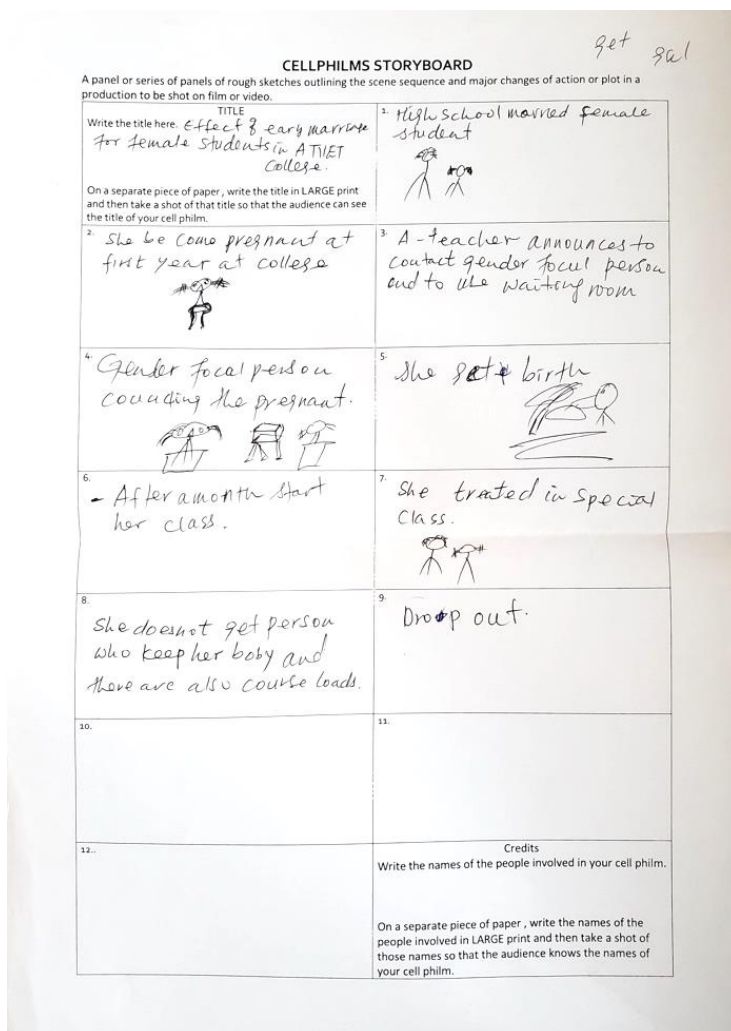 get gal
CELLPHILMS STORYBOARD
A panel or series of panels of rough sketches outlining the scene sequence and major changes of action or plot in a
production to be shot on film or video.
TITLE
Write the title here. Effect of early marriage
for female students in ATVET
College.
On a separate piece of paper , write the title in LARGE print
and then take a shot of that title so that the audience can see
the title of your cell philm.
1. High school married female
student
2. She be come pregnant at
first year at college
3. A-teacher announces to
contact gender focul person
and to use waiting room
4. Gender focal person
the pregnant.
5. she birth
6. - After a month start
her class.
7. She treated in special
class.
8. she doesnot get person
who keep her boby and
there are also course loads.
9. Drop out.
10.
11.
12..
Credits
Write the names of the people involved in your cell philm.
On a separate piece of paper , write the names of the
people involved in LARGE print and then take a shot of
those names so that the audience knows the names of
your cell philm.